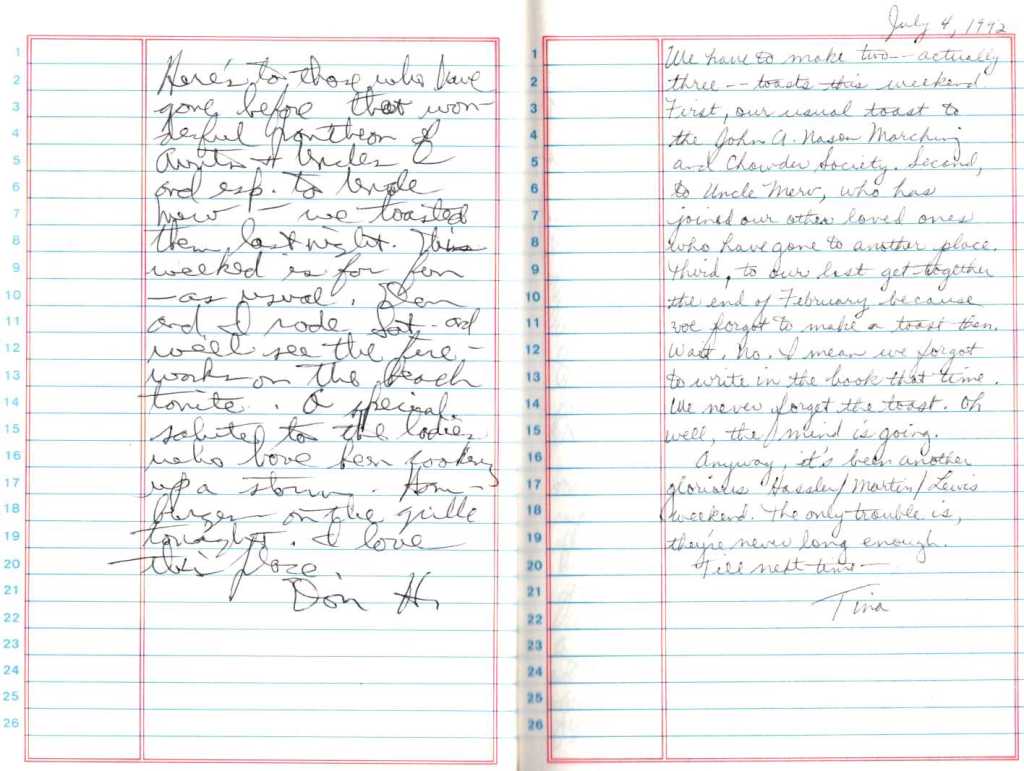 Here's to those who have
gone before that won-
derful pantheon of
Aunts & Uncles
and esp. to Uncle
Merv — we toasted
them last night. This
weeked is for fun
— as usual. Dan
and I rode Sat. and
we'll see the fire-
works on the beach
tonite. A special
salute to the ladies
who have been cooking
up a storm. Ham-
burgers on the grille
tonight. I love
this place.
Don H.
July 4, 1992
We have to make two -- actually
three -- toasts this weekend.
First, our usual toast to
the John A. Nason Marching
and Chowder Society. Second,
to Uncle Merv, who has
joined our other loved ones
who have gone to another place.
Third, to our last get-together
the end of February because
we forgot to make a toast then.
Wait. No. I mean we forgot
to write in the book that time.
We never forget the toast. Oh
well, the mind is going.
Anyway, it's been another
glorious Hassler/Martin/Lewis
weekend. The only trouble is,
they're never long enough.
Till next time —
Tina
1
2
3
4
5
6
7
8
9
10
11
12
13
14
15
16
17
18
19
20
21
22
23
24
25
26
1
2
3
4
5
6
7
8
9
10
11
12
13
14
15
16
17
18
19
20
21
22
23
24
25
26